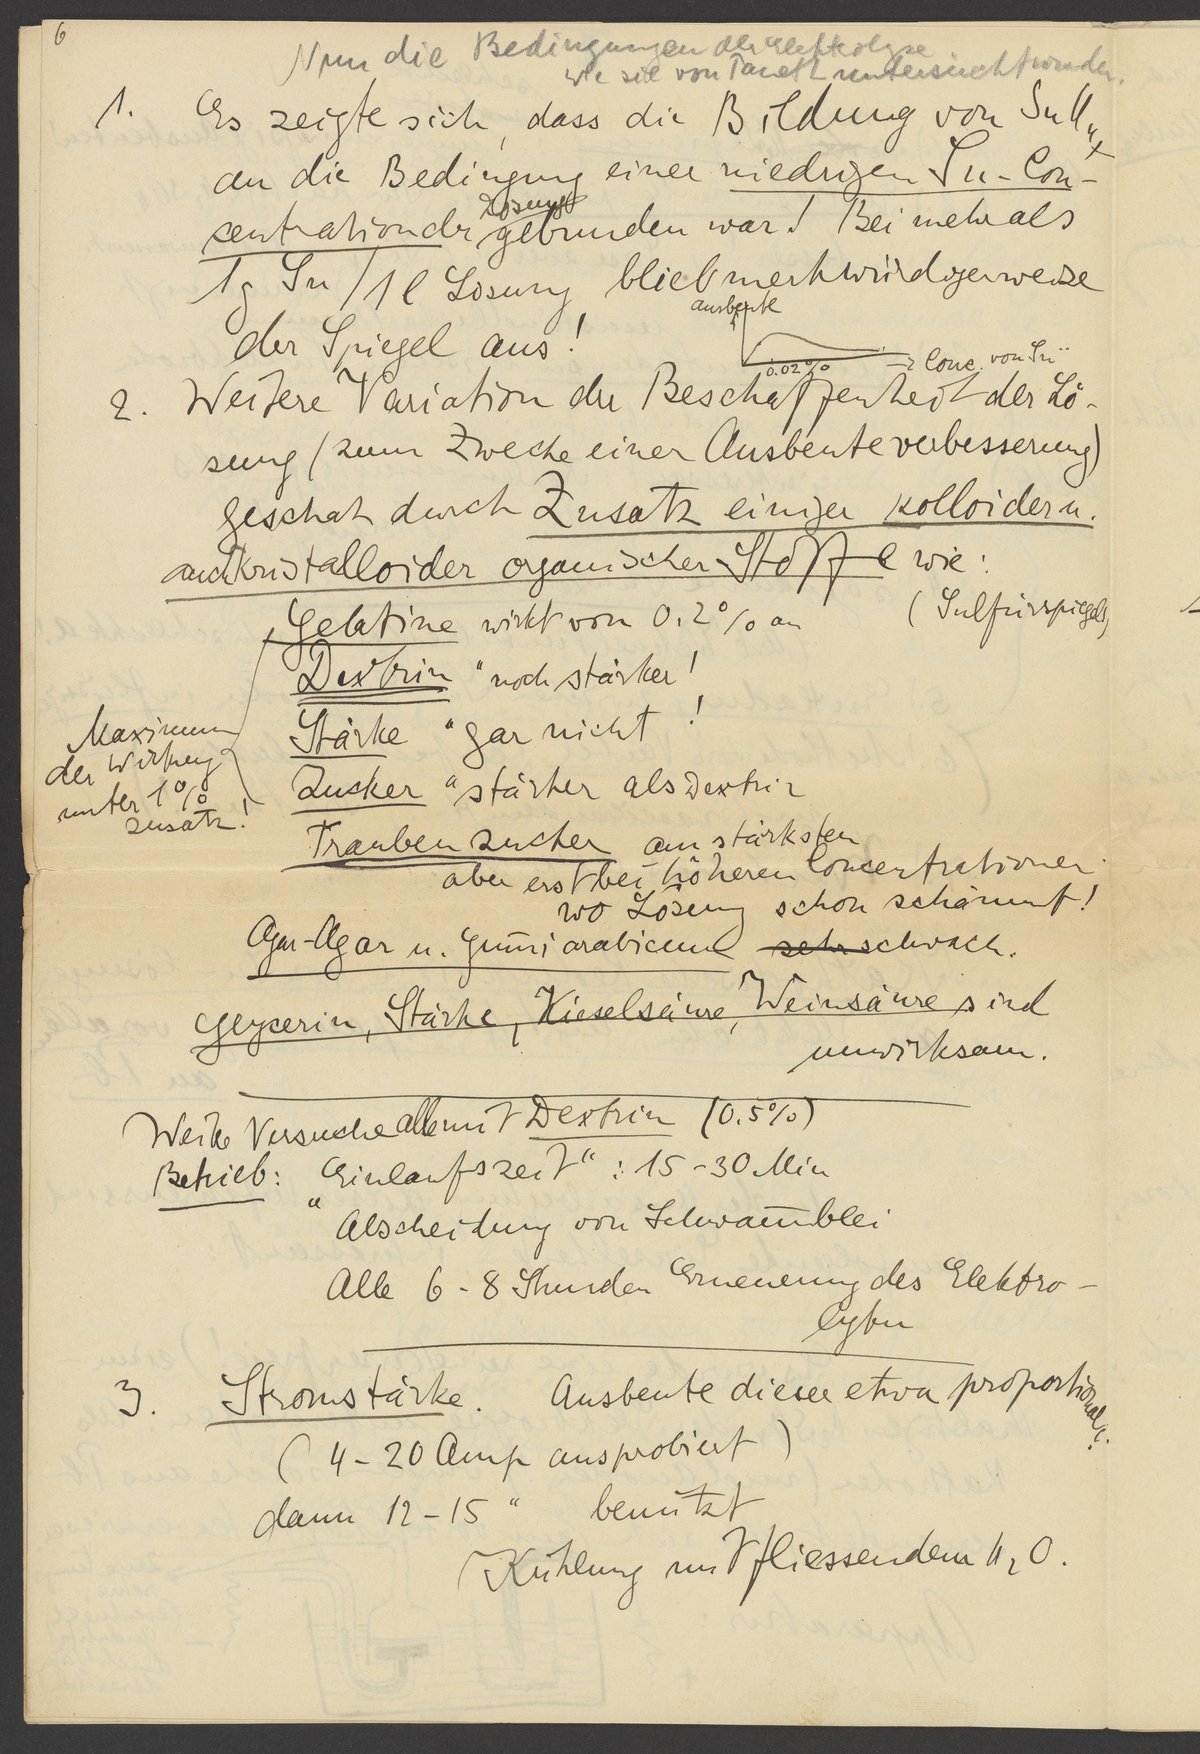 6
Nun die Bedingungen der Elektrolyse
wie sie von Paneth untersucht wurden.
1. Es zeigte sich, dass die Bildung von SnHx
an die Bedingung einer niedrigen Sn-Con-
zentration der Lösung gebunden war! Bei mehr als
1g Sn/1 l Lösung blieb merkwürdigerweise
der Spiegel aus!
ausbeute
0.02% → Conc. von Sn··
2. Weitere Variation der Beschaffenheit der Lö-
sung (zum Zwecke einer Ausbeuteverbesserung)
geschah durch Zusatz einiger kolloider u.
auch kristalloider organischer Stoffe wie:
Gelatine wirkt von 0.2% an
(Sulfürspiegel)
Dextrin " noch stärker!
Stärke " gar nicht !
Zucker " stärker als Dextrin
Maximum
der Wirkung
unter 1%
zusatz!
Traubenzucker am stärksten
aber erst bei höheren Concentrationen
wo Lösung schon schäumt!
Agar-Agar u. Gum̄i arabicum sehr schwach.
Glycerin, Stärke, Kieselsäure, Weinsäure sind
unwirksam.
Weite Versuche alle mit Dextrin (0.5%)
Betrieb: "Einlaufszeit" : 15-30 Min
Abscheidung von Schwam̄blei
Alle 6-8 Stunden Erneuerung des Elektro-
lyten
3. Stromstärke. Ausbeute dieser etwa proportional
(4-20 Amp ausprobiert)
dann 12-15 " benützt
Kühlung mit fliessendem H2O.